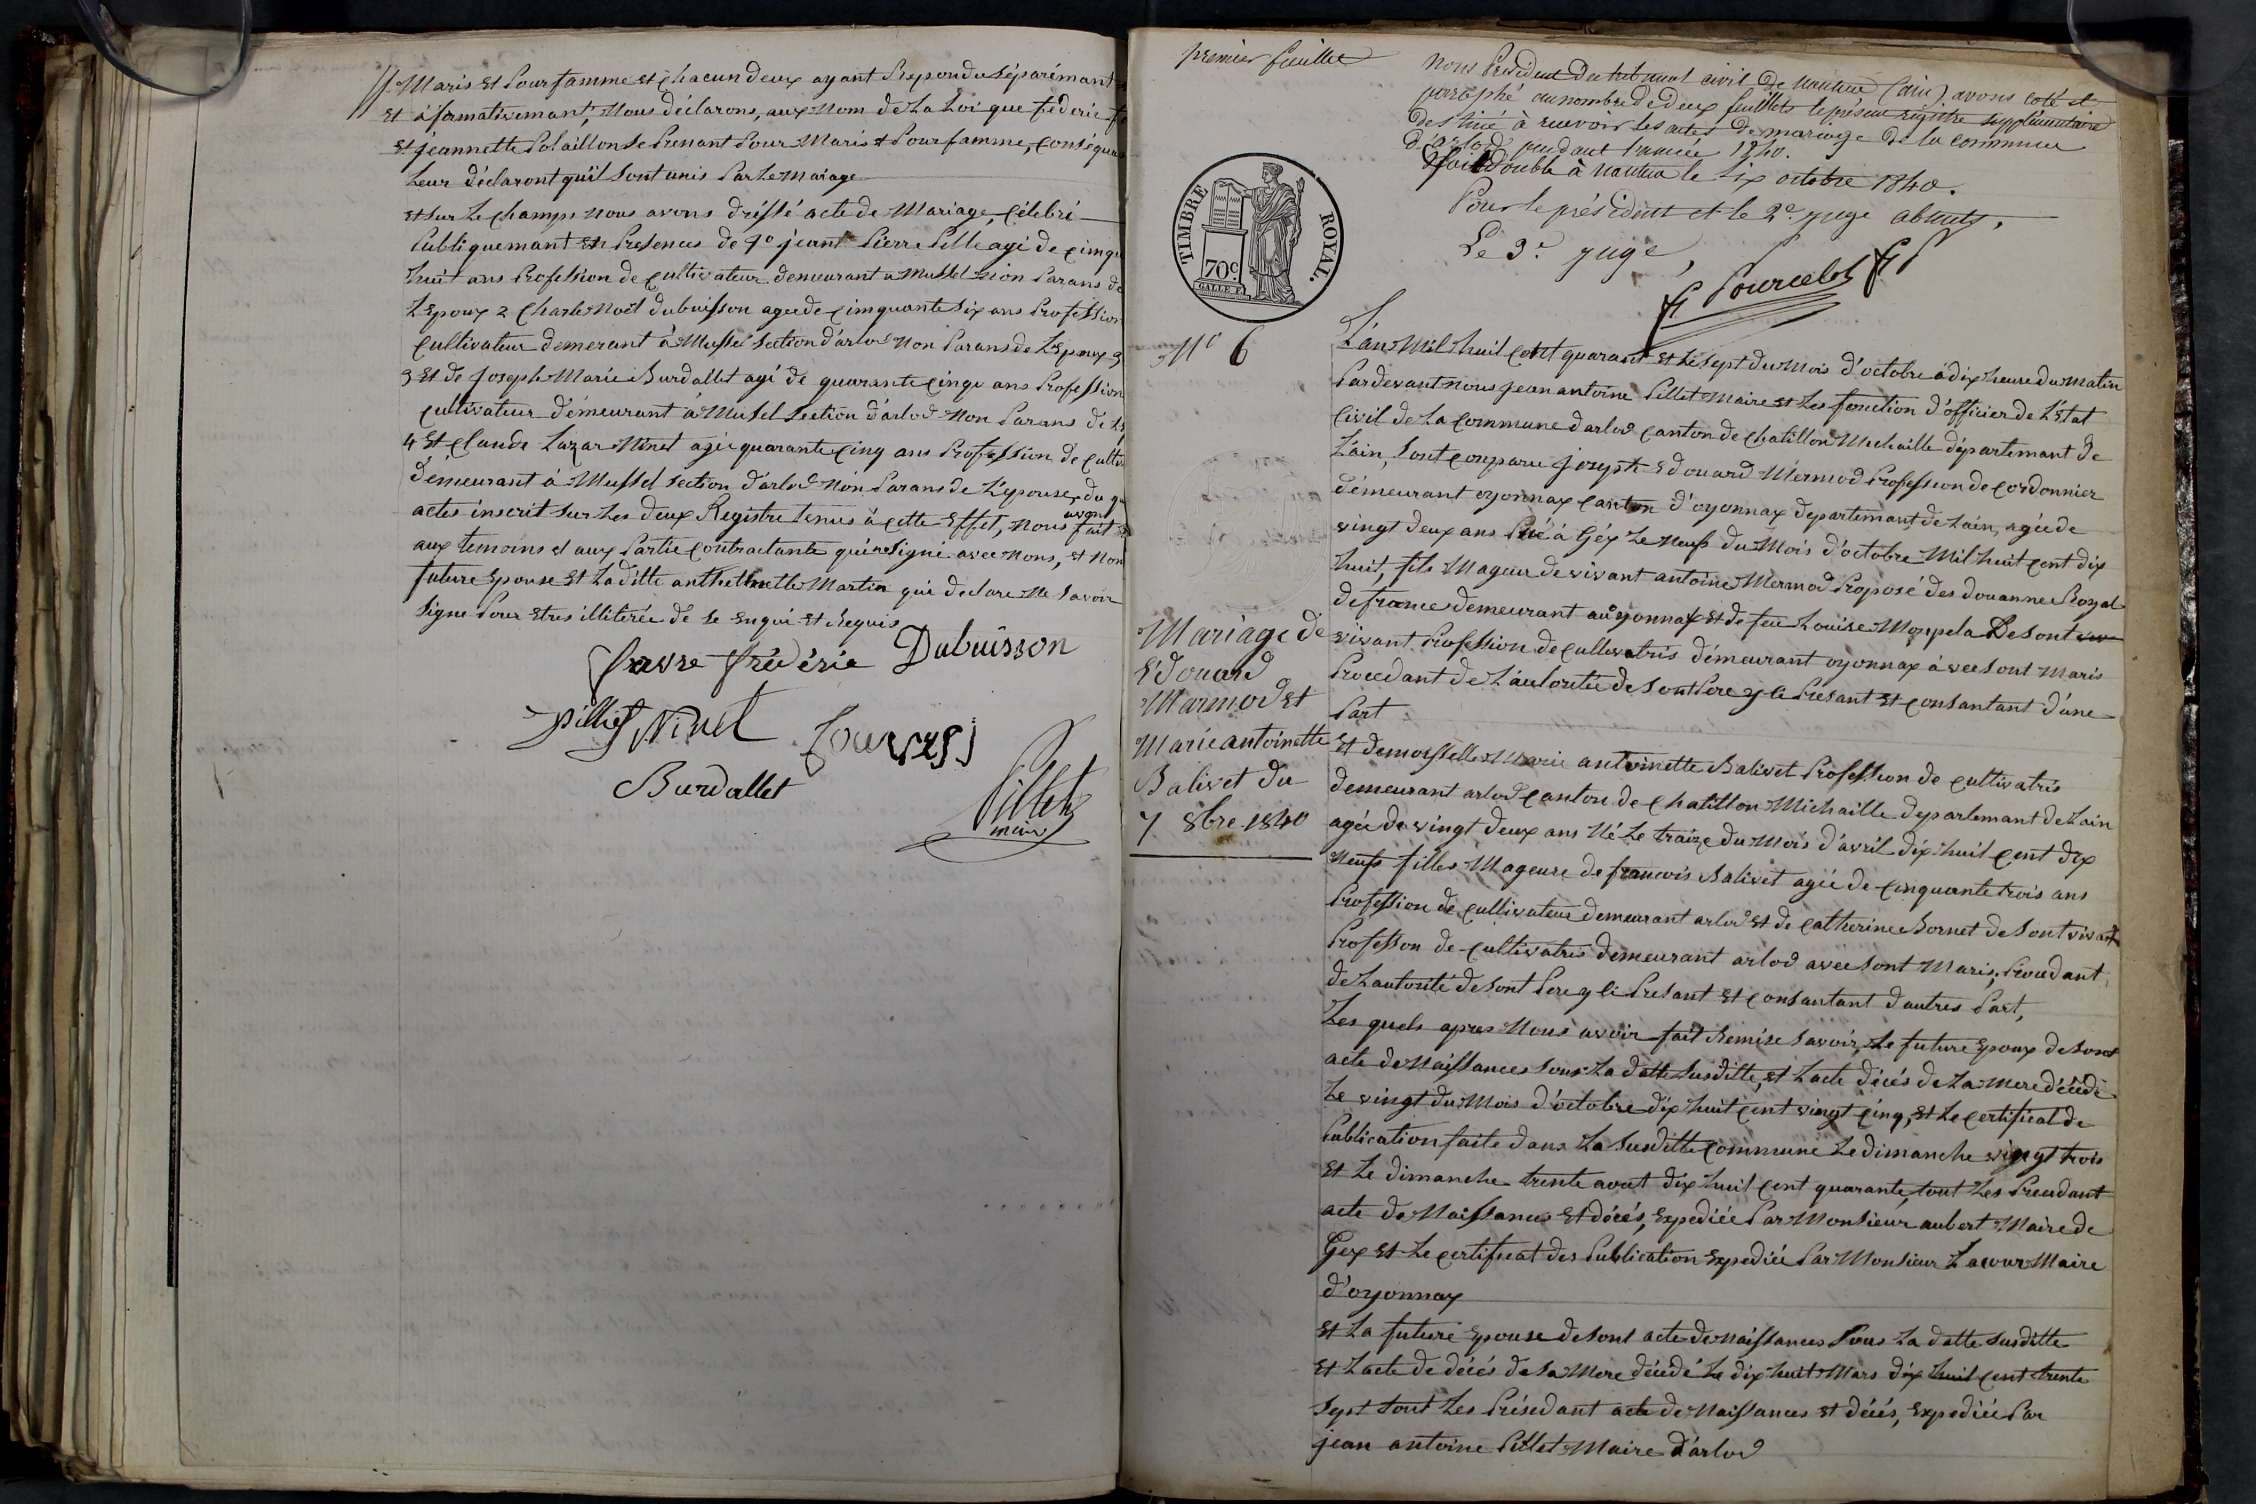 Maris et Pour famme et chacun deux ayant Repondu séparémant
et afarmativemant, Nous déclarons, aux Nom de La Loi que féderic
et jeannette Polaillon Se Prenant Pour Maris et Pour famme, conséqua
Leur déclaront qu'il sont unis Par Le Mariage
et sur Le champs nous avons dréssé acte de Mariage, célebré
Publiquemant en Presences de 1º jeant Pierre Pelle agé de cinqu
huit ans Profession de cultivateur demeurant a Mussel Non Parans de
L'Epoux 2 Charle Noël dubuisson ageé de cimquante six ans Profession
Cultivateur demerant à Mussel Section d'arlod Non Parans de L'Epoux 3
3 et de Joseph Marie Burdallet agé de quarante cinqu ans Profession
Cultivateur démeurant à Mussel Section d'arlod Non Parans de L'E
4 et Claude Lazar Ninet agé quarante cinq ans Profession de culti
démeurant à Mussel Section d'arlod Non Parans de L'épouse, du qu
actes inscrit sur Les deux Registre tenus à cette Effet, Nous avont fait
aux temoins et aux Partie Contractante qui ne Signé avec Nous, et Non
future Epouse et La ditte anthelmette Martin qui declare Ne Savoir
Signe Pour etres illiterée de Ce enqui et Réquis
favre frédéric Dubuisson
Pillief Ninet
Burdallet
Pillet
maire
premier feuillet
Nous Président du tribunal civil de Nantua (ain) avons coté et
paraphé au nombre de deux feuillets le présent registre supplémentaire
destiné à recevoir les actes de mariage de la commune
d'arlod pendant l'année 1840.
fait double à Nantua le six octobre 1840.
Pour le président et le 2e juge absents,
Le 3e juge,
Pourcelot
TIMBRE ROYAL.
70c.
GALLE F.
Nº 6
Mariage de
Edouard
Marmod et
Marie antoinette
Balivet du
7 8bre 1840
L'an Mil huit cent quarant et Le Sept du Mois d'octobre à dix heure du Matin
Pardevant nous jean antoine Pillet Maire et Les fonction d'officier de L'Etat
Civil de La Commune darlod canton de chatillon Michaille départemant de
L'ain, sont conparu joseph Edouard Mermod Profession de cordonnier
démeurant oyonnax canton d'oyonnax departemant de Lain, agée de
vingt deux ans Né à Géx Le Neuf du Mois d'octobre Mil huit cent dix
huit, fils Mageur de vivant antoine Mermod Proposé des douanne Royal
de france demeurant au oyonnax et de feu Louise Monpela De sont
vivant Profession de cultivatris démeurant oyonnax avec sont Maris
Procedant de L'autoritée de Sont Pere y li Présant et consantant d'une
Part
Et demoisselle Marie antoinette Balivet Profession de cultivatris
demeurant arlod canton de Chatillon Michaille departemant de Lain
agée de vingt deux ans Né Le traize du Mois d'avril dix huit cent dix
Neuf filles Mageure de francois Balivet agée de cinquante trois ans
Profession de cultivateur demeurant arlod et de Catherine Bornet de Sont vivant
Professon de cultivatris demeurant arlod avec sont Maris, Procedant
de L'autorité de sont Pere y li Presant et consantant d'autres Part,
Les quels apres Nous avoir fait Remise Savoir, Le future Epoux de sont
acte de Naissances sous La datte susditte, et Lacte décés de La Mere décédé
Le vingt du Mois d'octobre dix huit cent vingt cinq, et Le certificat de
Publication faite dans La Susditte Commune Le dimanche vingt trois
et Le dimanche trente aout dix huit cent quarante, tout Les Precedant
acte de Naissances et décés, Expediée Par Monsieur aubert Maire de
Gex et Le certificat des Publication Expediée Par Monsieur Lacour Maire
d'oyonnax
et La future Epouse de sont acte de Naissances sous La datte susditte
et Lacte de décés de sa Mere décédé Le dix huit Mars dix huit cent trente
Sept tout Les Présedant acte de Naissances et décés, Expediée Par
jean antoine Pillet Maire d'arlod